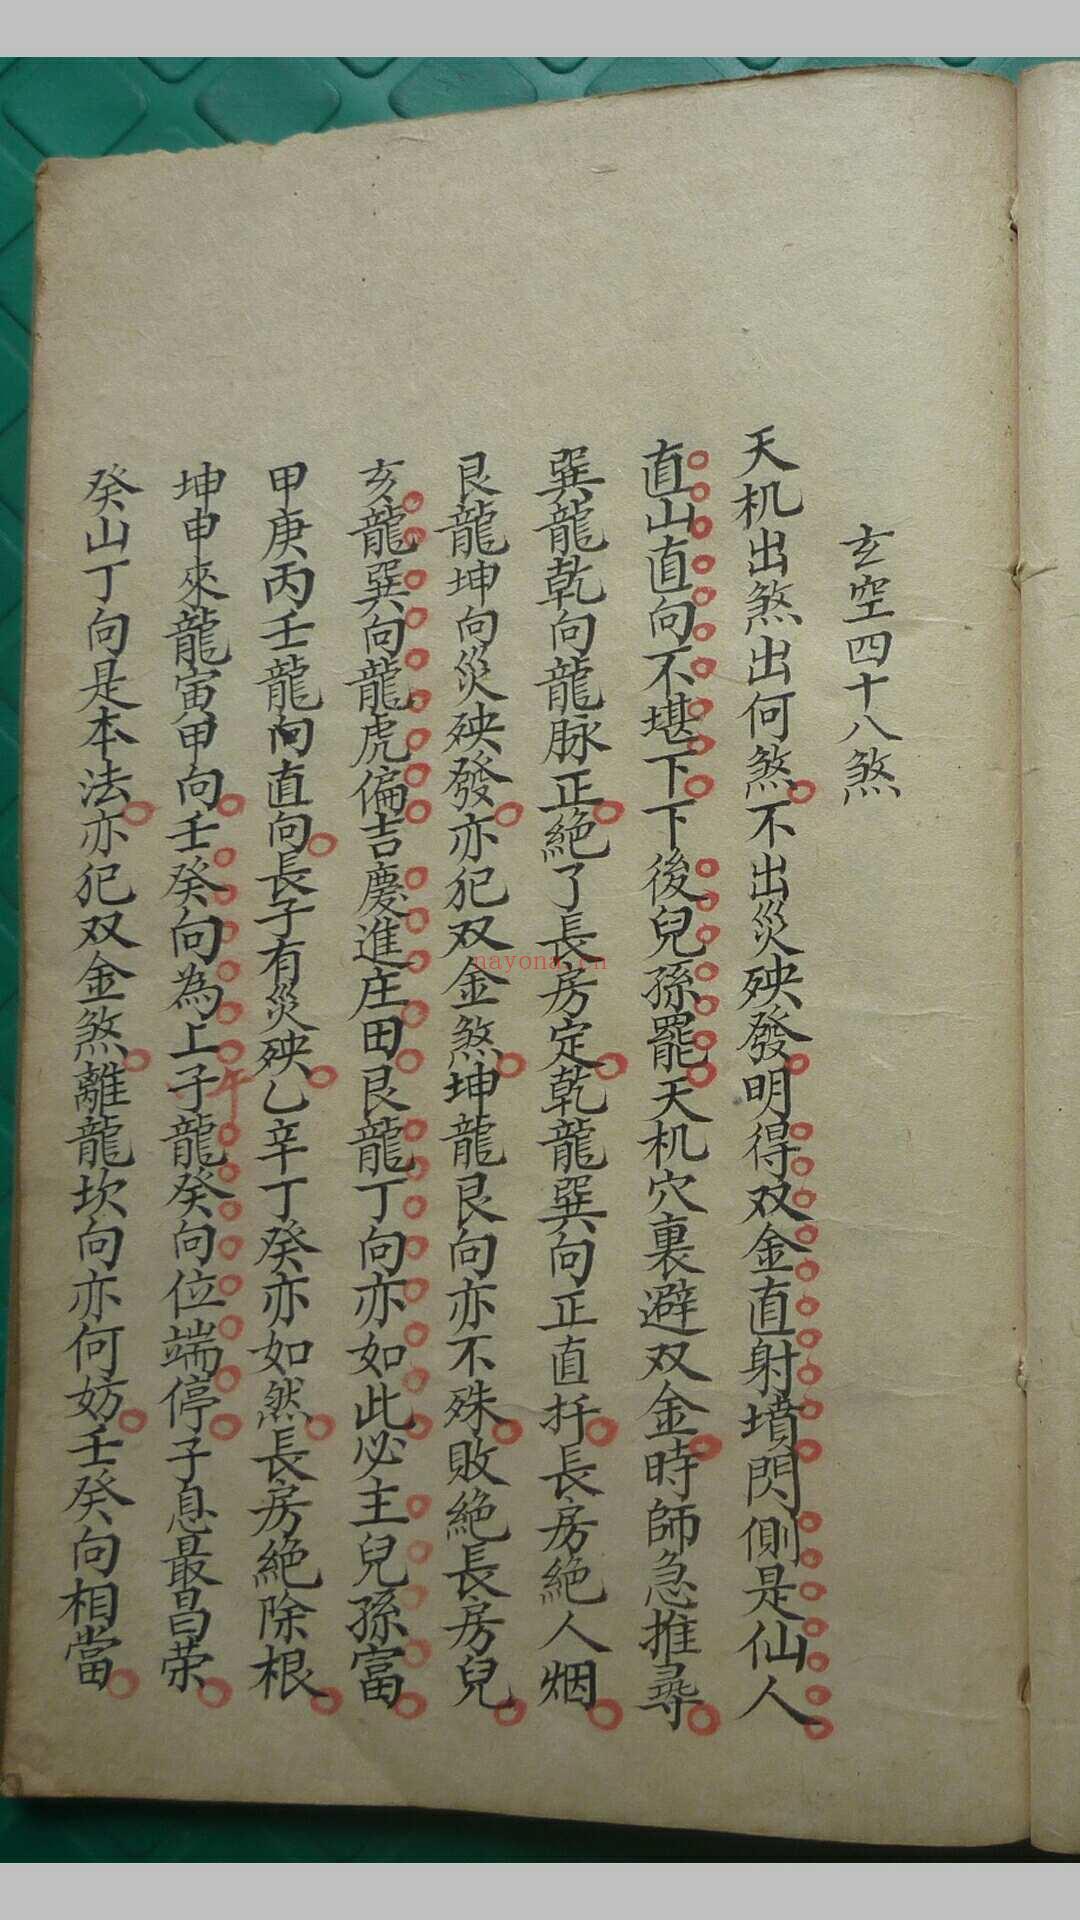 玄空四十八煞
天机出煞出何煞不出災殃發明得双金直射墳閃側是仙人
直山直向不堪下下後兒孫罷天机穴裏避双金時師急推尋
巽龍乾向龍脉正絕了長房定乾龍巽向正直扦長房絕人烟
艮龍坤向災殃發亦犯双金煞坤龍艮向亦不殊敗絕長房兒
亥龍巽向龍虎偏吉慶進庄田艮龍丁向亦如此必主兒孫富
甲庚丙壬龍向直向長子有災殃乙辛丁癸亦如然長房絕除根
坤申來龍寅甲向壬癸向為上子午龍癸向位端停子息最昌荣
癸山丁向是本法亦犯双金煞離龍坎向亦何妨壬癸向相當
nayona.cn